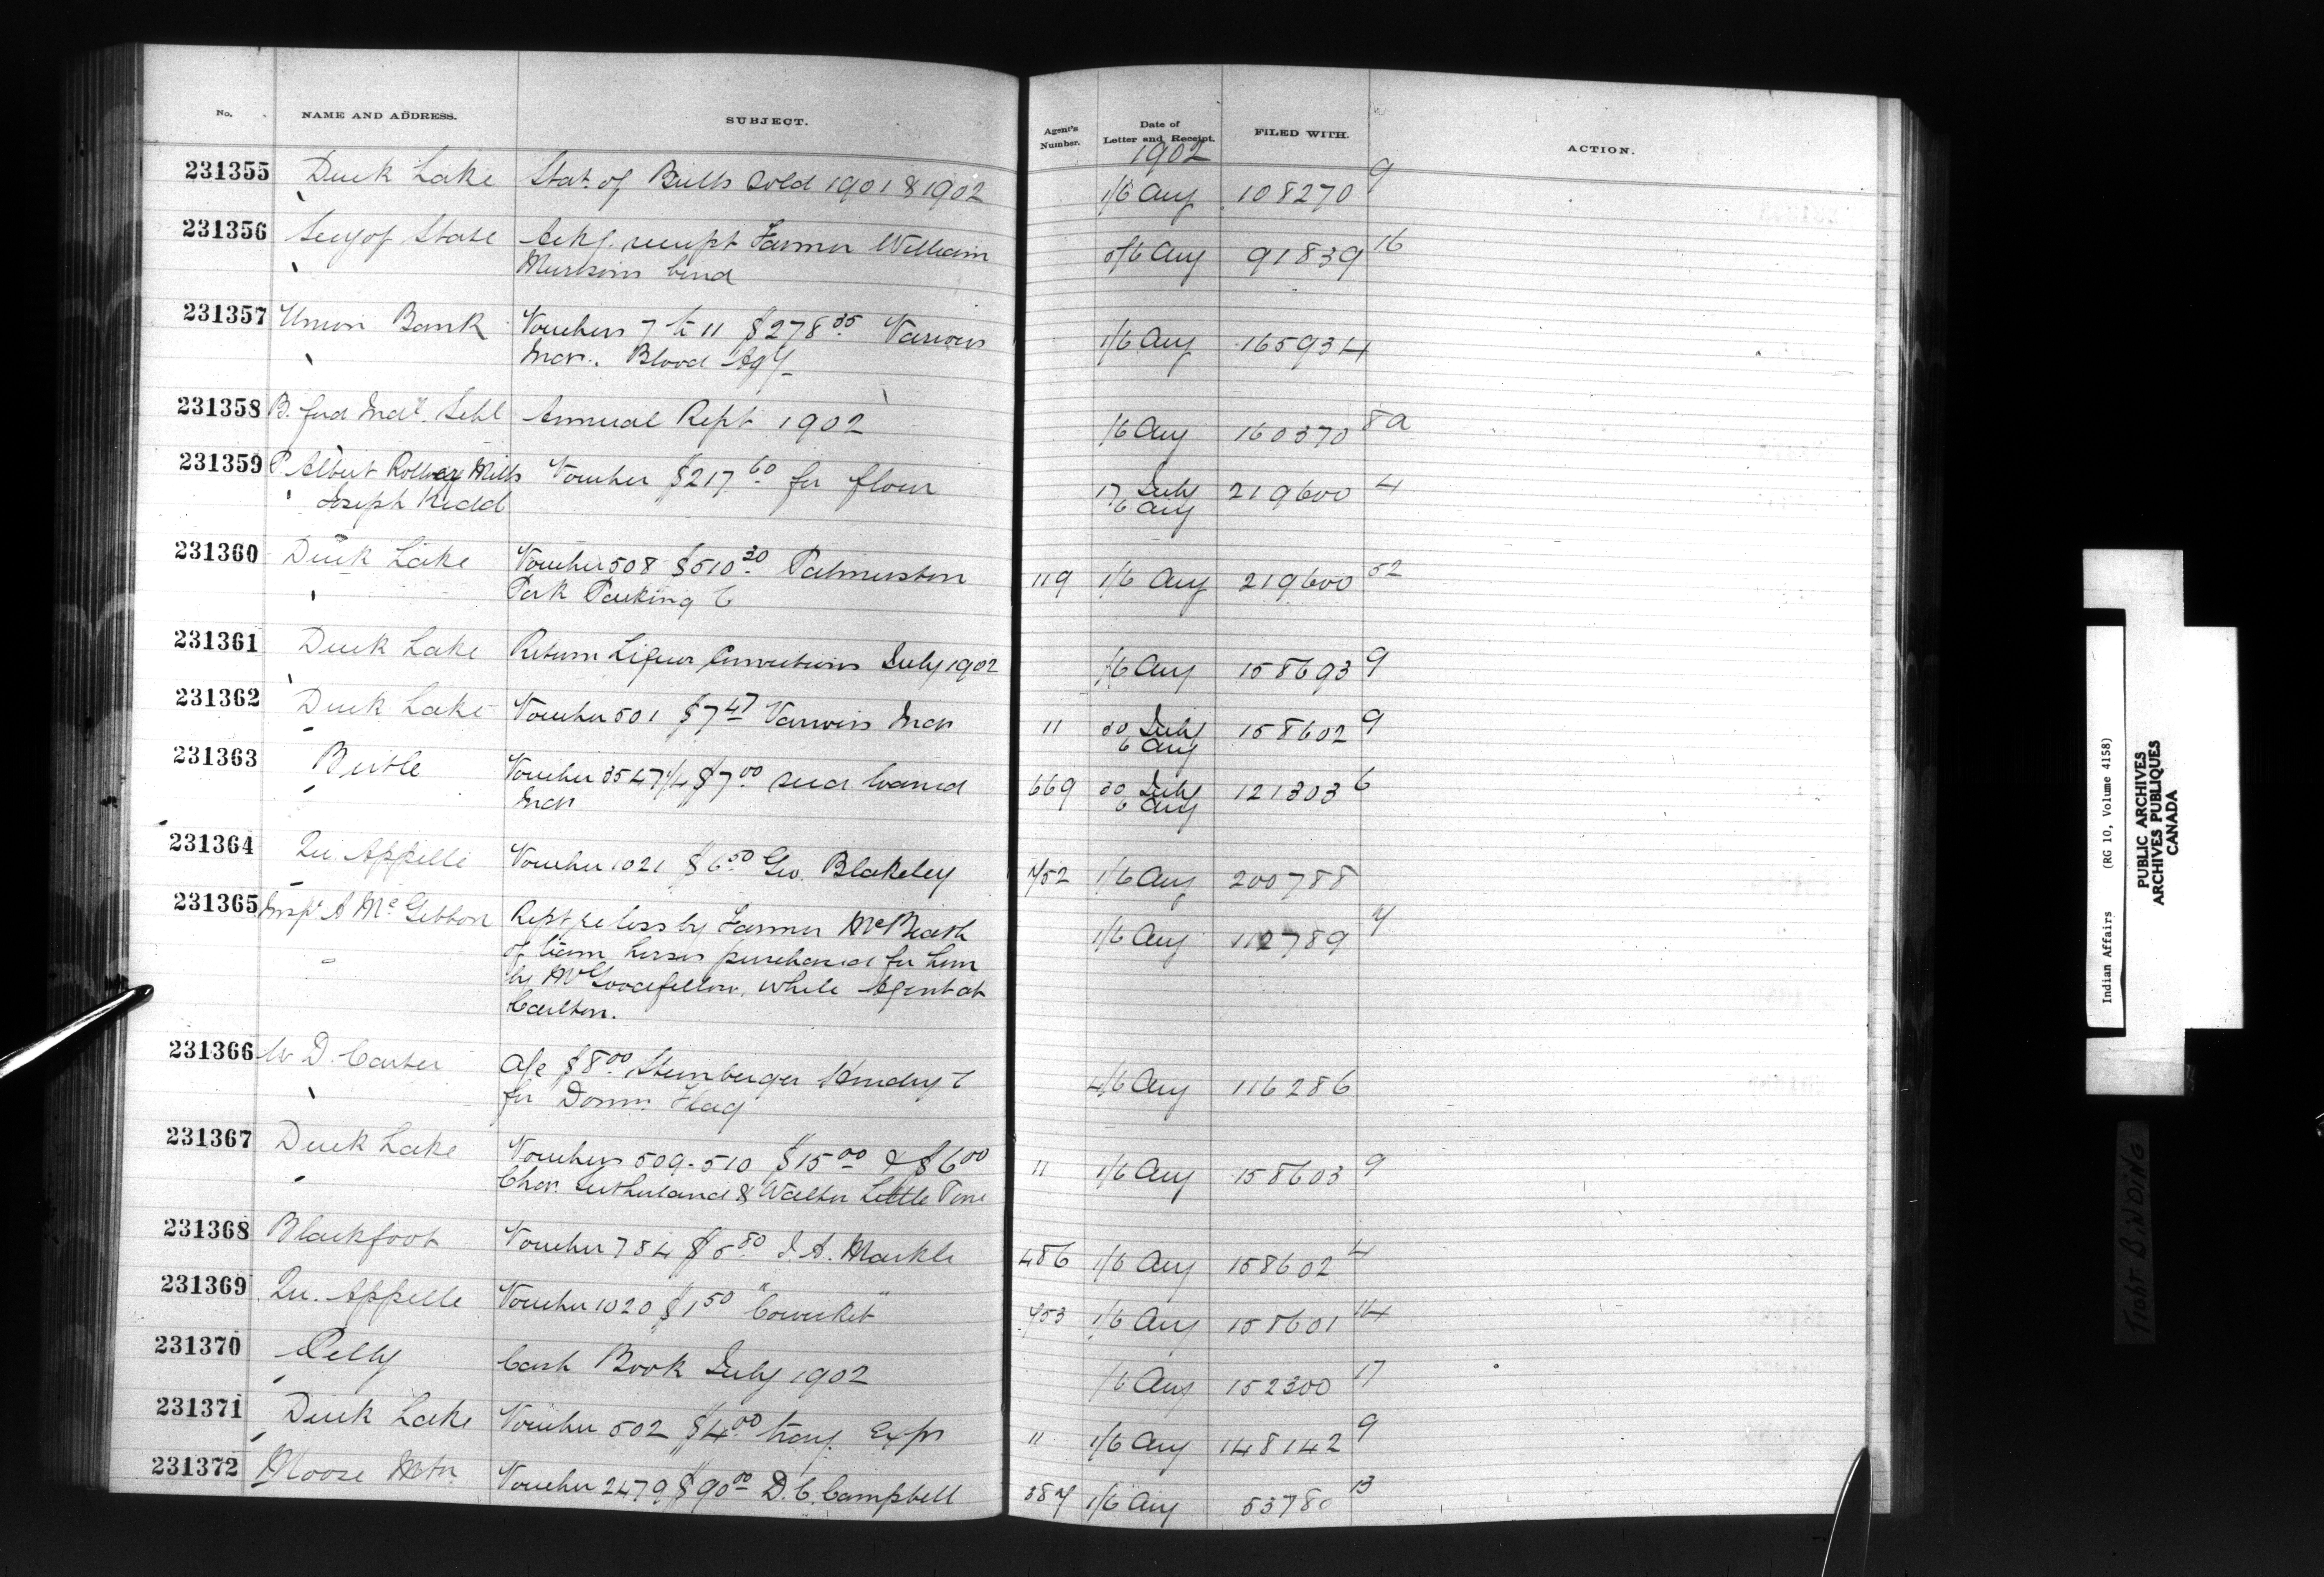 No. NAME AND ADDRESS. SUBJECT. Agent's Number. Date of Letter and Receipt. FILED WITH. ACTION.
1902
231355 Duck Lake Stat. of Bulls sold 1901 & 1902 1/6 Aug 108270 9
231356 Secy of State Ackg. receipt Farmer William 5/6 Aug 91839 16
Murison bond
231357 Union Bank Vouchers 7 to 11 $278.35 Various 1/6 Aug 165934
Inds. Blood Agy
231358 B. ford Indl. Schl Annual Rept 1902 /6 Aug 160370 8a
231359 P. Albert Roller Mills Voucher $217.60 for flour 17 July 219600 4
Joseph Kidd 6 Aug
231360 Duck Lake Voucher 508 $510.30 Palmerston 119 1/6 Aug 219600 52
Pork Packing C
231361 Duck Lake Return Liquor Convictions July 1902 /6 Aug 158693 9
231362 Duck Lake Voucher 501 $7.47 Various Inds 11 30 July 158602 9
6 Aug
231363 Birtle Voucher 3547 1/4 $7.00 seed loaned 669 30 July 121303 6
Inds 6 Aug
231364 Qu. Appelle Voucher 1021 $6.50 Geo. Blakeley 452 1/6 Aug 200788
231365 Insp. A McGibbon Rept re loss by Farmer McBeath 1/6 Aug 112789 4
of team horses purchased for him
by Mr Goodfellow, while Agent at
Carlton.
231366 W D. Carter A/c $8.00 Steinberger Hendry C 4/6 Aug 116286
for Domn. Flag
231367 Duck Lake Vouchers 509-510 $15.00 & $6.00 11 1/6 Aug 158603 9
Chas. Sutherland & Walter Little Pine
231368 Blackfoot Voucher 784 $5.80 J. A. Markle 486 1/6 Aug 158602 4
231369 Qu. Appelle Voucher 1020 $1.50 453 1/6 Aug 158601 14
231370 Pelly Cash Book July 1902 /6 Aug 152300 17
231371 Duck Lake Voucher 502 $4.00 trav. Exps 11 1/6 Aug 148142 9
231372 Moose Mtn. Voucher 2479 $90.00 D. C. Campbell 384 1/6 Aug 53780 13
Indian Affairs (RG 10, Volume 4158)
PUBLIC ARCHIVES
ARCHIVES PUBLIQUES
CANADA
TIGHT BINDING